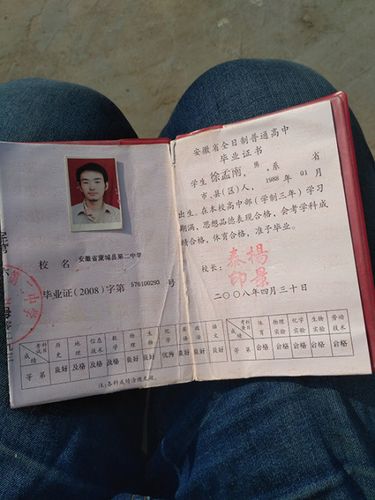 校 名 安徽省蒙城县第二中学
毕业证(2008)字第 576100293 号
考试科目 历史 地理 信息技术 数学 物理 生物 化学 英语 政治 语文
成绩
等第 良好 及格 及格 及格 良好 良好 优秀 良好 良好 良好
注:各科成绩涂改无效。
安徽省全日制普通高中
毕业证书
学生 徐孟南,男,系 省
市、县(区)人,1988 年 01 月
出生。在本校高中部(学制三年)学习
期满,思想品德表现合格,会考学科成
绩合格,体育合格,准予毕业。
校长:
二〇〇八年四月三十日
考查科目 体育 物理实验 化学实验 生物实验 劳动技术
成绩
等第 合格 合格 合格 合格 合格